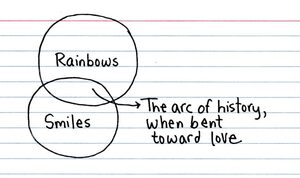 Rainbows
Smiles
The arc of history,
when bent
toward love